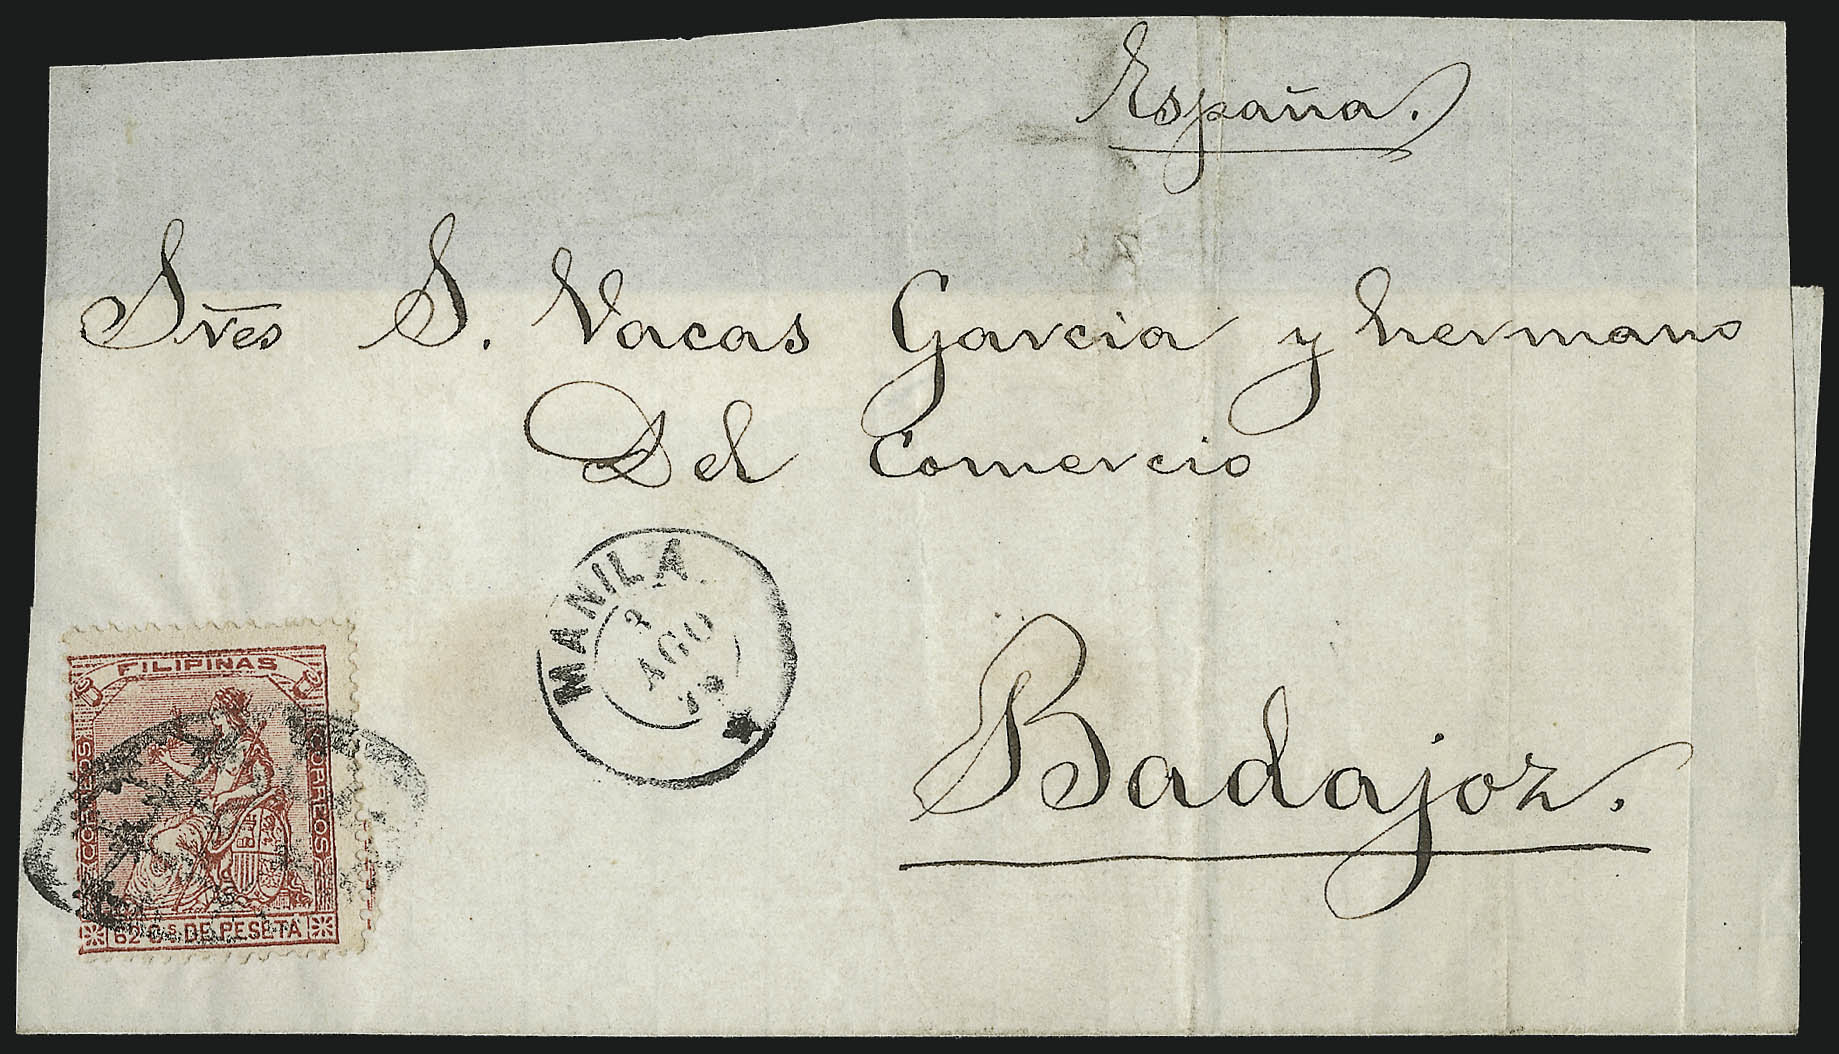 España.
Sres S. Vacas Garcia y hermano
Del Comercio
MANILA
2
AGO
Badajoz.
FILIPINAS
CORREOS
CORREOS
62 Cs DE PESETA